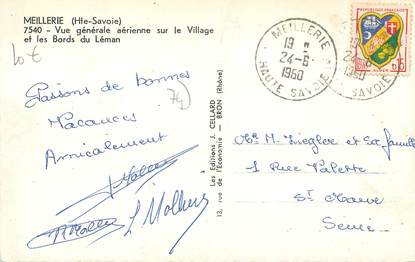 MEILLERIE (Hte-Savoie)
7540 - Vue générale aérienne sur le Village
et les Bords du Léman
10 €
74
Passons de bonnes
Vacances
Amicalement
Les Editions J. CELLARD
13, rue de l'Economie - BRON (Rhône)
MEILLERIE
19 H
24-6
1960
HAUTE SAVOIE
24-6
1960
SAVOIE
REPUBLIQUE FRANÇAISE
0,15
ALGER
Mr M. Ziegler et sa famille
1 Rue Valette
St Maur
Seine